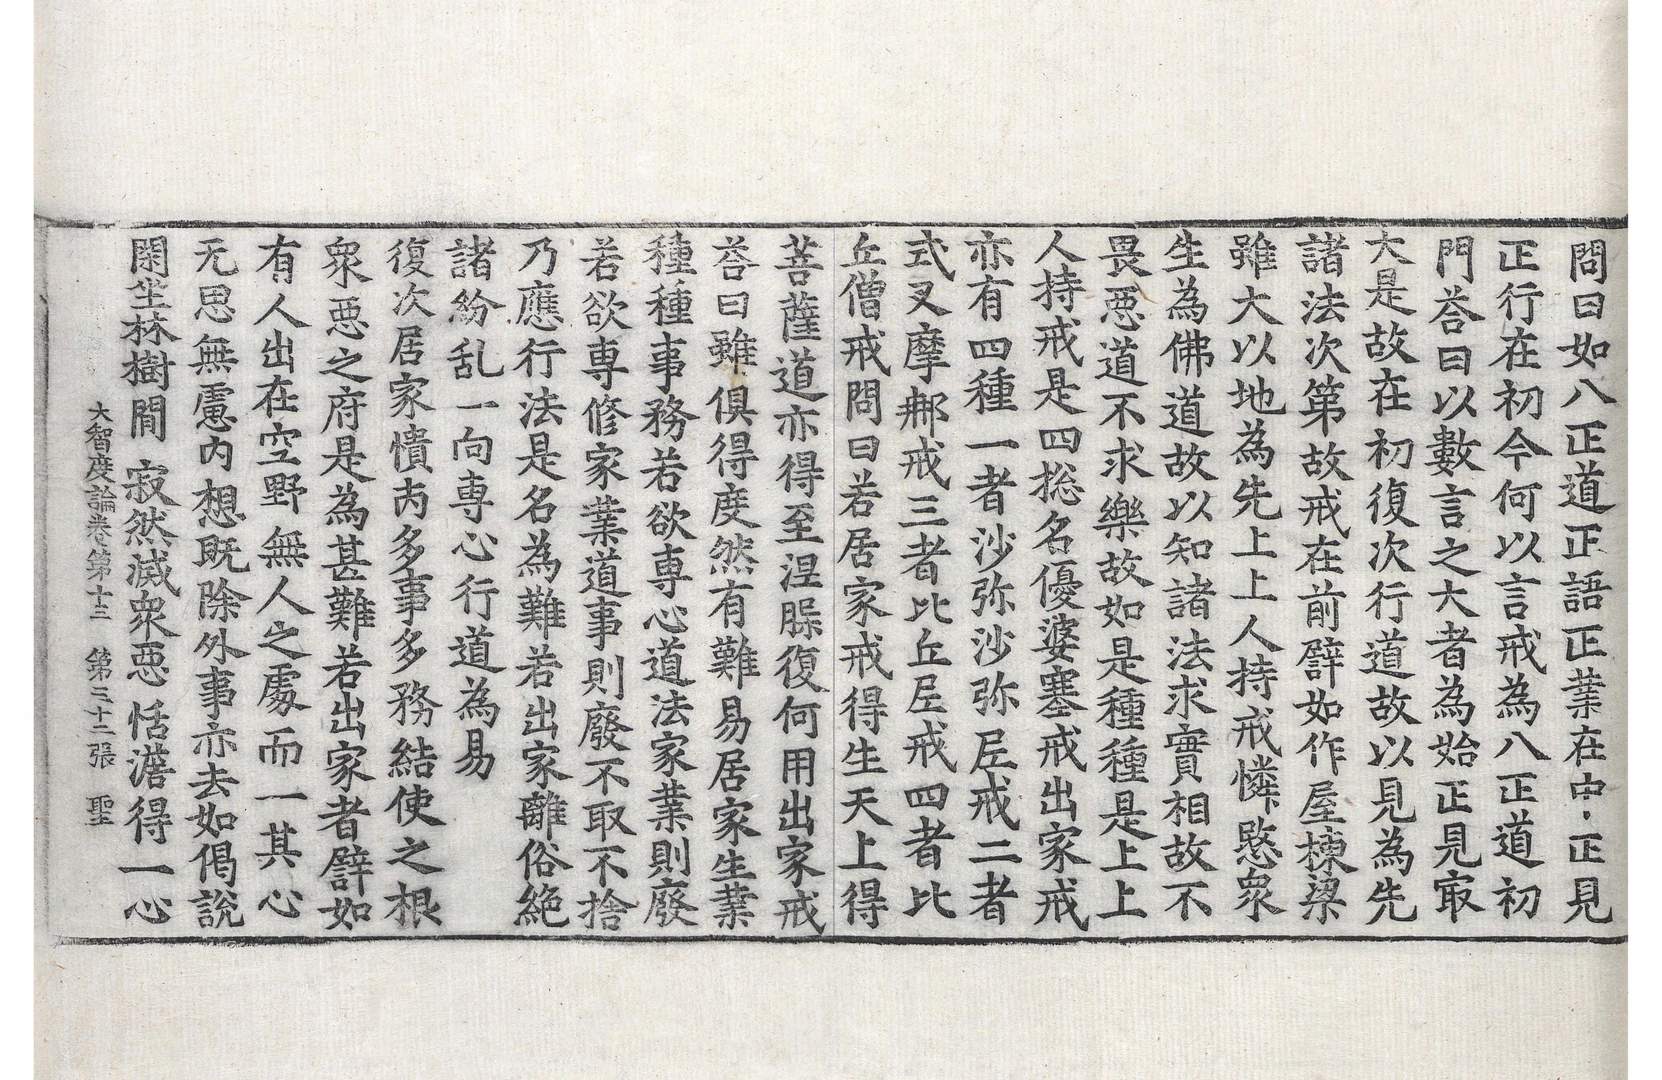 問曰如八正道正語正業在中正見
正行在初今何以言戒為八正道初
門荅曰以數言之大者為始正見冣
大是故在初復次行道故以見為先
諸法次第故戒在前譬如作屋棟梁
雖大以地為先上上人持戒憐愍衆
生為佛道故以知諸法求實相故不
畏惡道不求樂故如是種種是上上
人持戒是四摠名優婆塞戒出家戒
亦有四種一者沙弥沙弥尼戒二者
式叉摩那戒三者比丘尼戒四者比
丘僧戒問曰若居家戒得生天上得
菩薩道亦得至涅槃復何用出家戒
荅曰雖俱得度然有難易居家生業
種種事務若欲專心道法家業則廢
若欲專修家業道事則廢不取不捨
乃應行法是名為難若出家離俗絶
諸紛乱一向專心行道為易
復次居家憒丙多事多務結使之根
衆惡之府是為甚難若出家者譬如
有人出在空野無人之處而一其心
无思無慮內想既除外事亦去如偈說
閑坐林樹間 寂然滅衆惡 恬澹得一心
大智度論卷第十三 第三十二張 聖